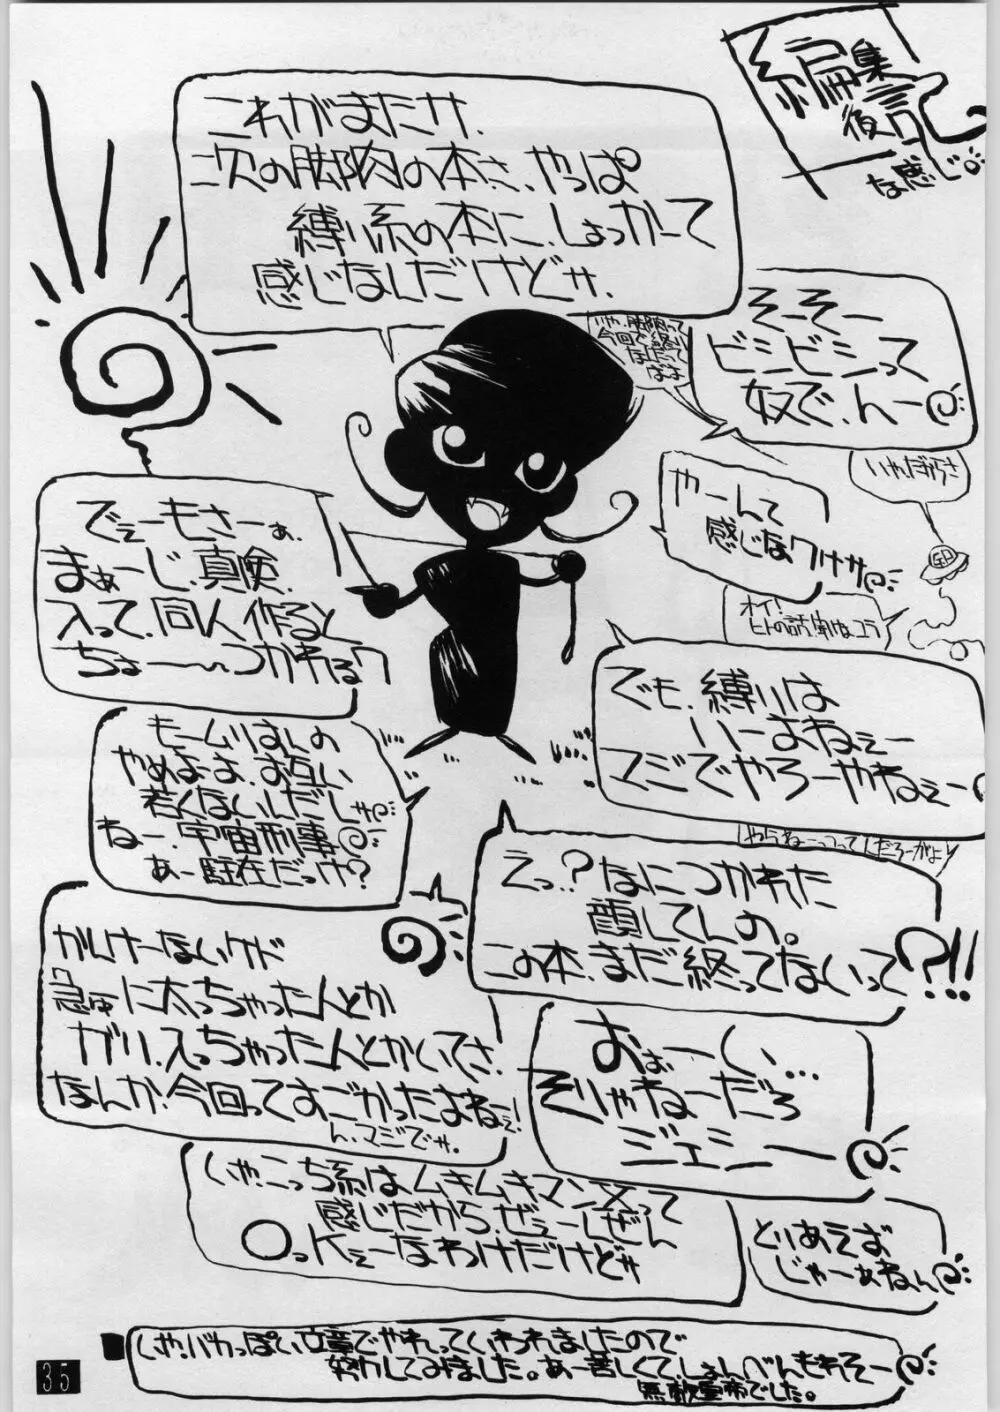 編集
後記
な感じ
これがまたサ、
次の脚肉の本さ、やっぱ
縛り系の本に、しよっかーて
感じなんだけどサ、
いや、脚肉って
今回で終り
なんだって
ばよ
そーそー
ビシビシって
奴で、んー
いやだからさ
やーんて
感じなワケサ
オイ!
ヒトの話聞けよコラ
でぇーもさーぁ、
まぁーじ、真険、
入って、同人作ると
ちょ——つかれるワ
でも、縛りは
いーよねぇー
マジでやろーやねぇー
やらねーっつってんだろーがよ
モームリはんの
やめよーよ、お互い
若くないんだしサ
ねー、宇宙刑事
あー駐在だっけ?
えっ?なにつかれた
顔してんの。
この本、まだ終ってないって?!!
がんけーないケド
急に太っちゃった人とか
ガリ入っちゃった人とかいてさ、
なんか、今回ってすごかったよねーぇ!
ん、マジでサ。
おぉーーい、…
そりゃねーだろ
ジェシー
いや、こっち系はムキムキマンメって
感じだから、ぜぇーんぜん
〇っKぇーなわけだけどサ
とりあえずお
じゃーぁねん
いや、バカっぽい文章でやれっていわれましたので
努力してみました。あー苦しくて、しょんべんもれそー
無敵宣布でした。
35